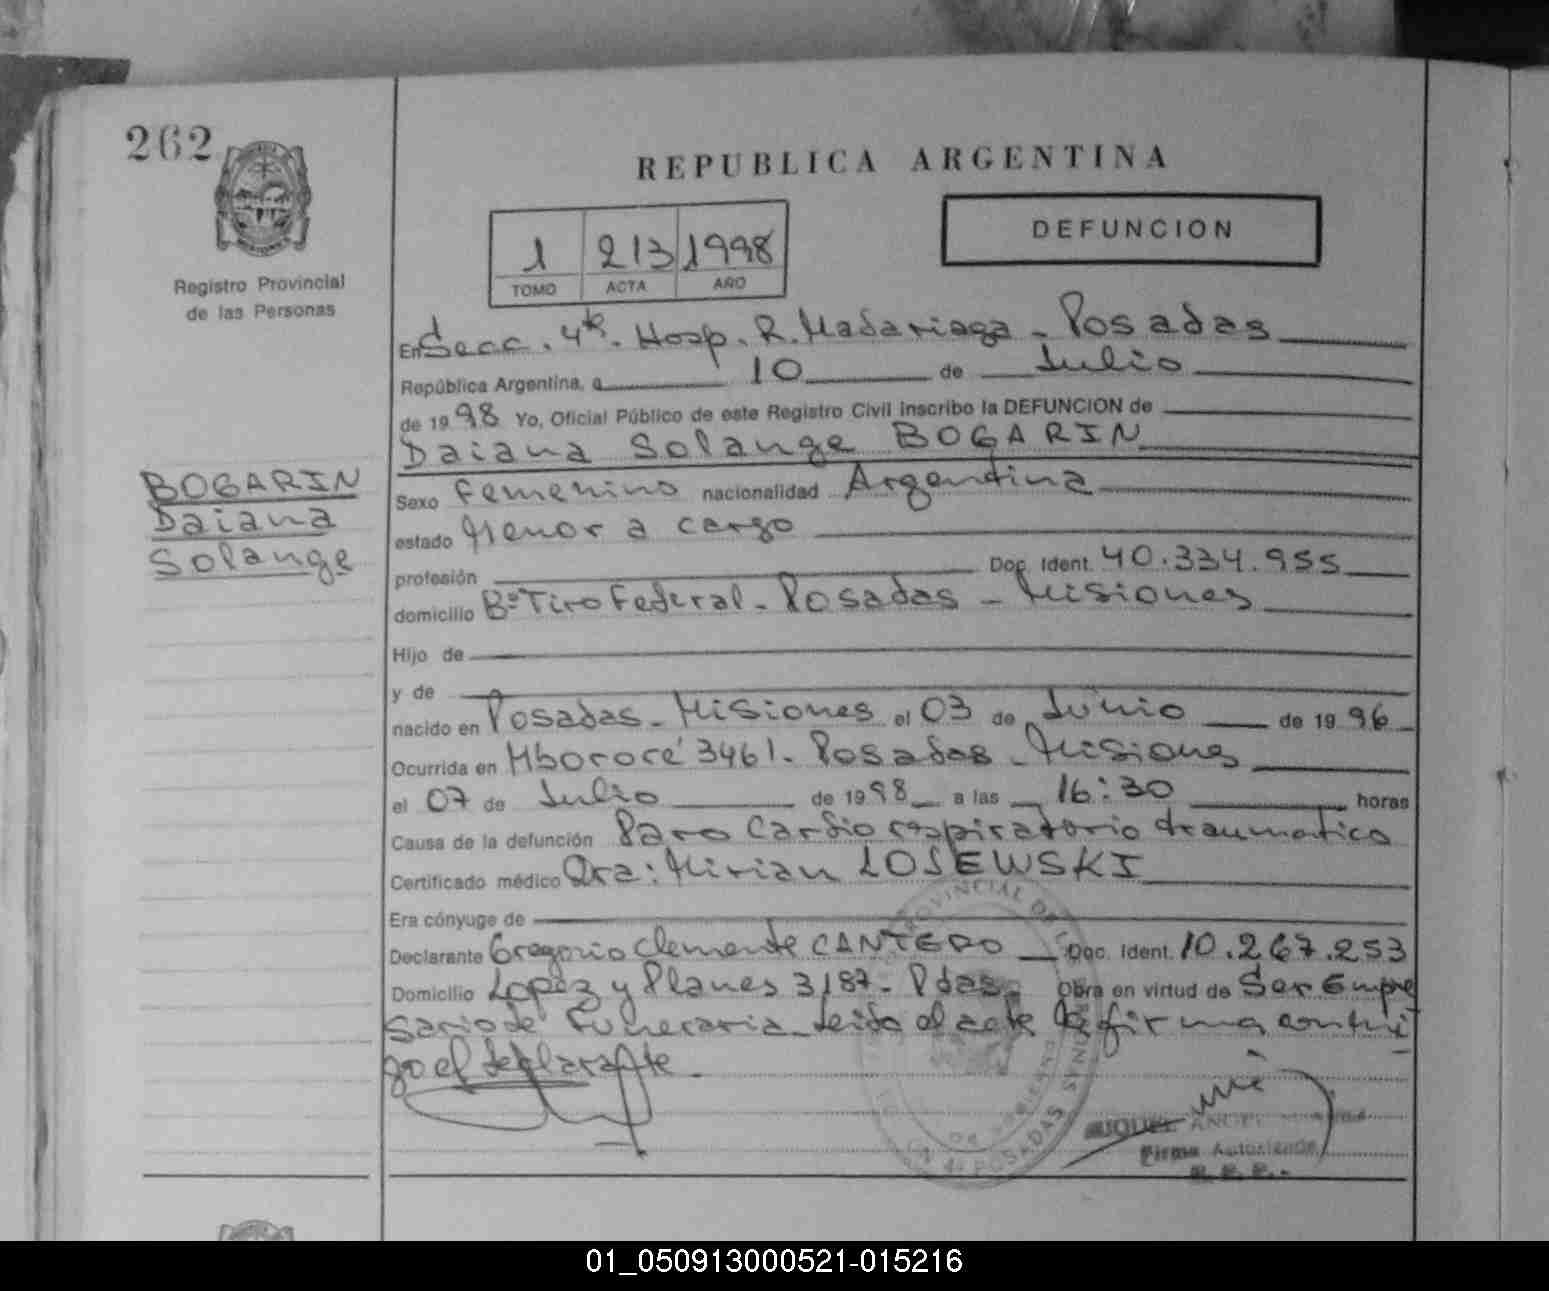 262
REPUBLICA ARGENTINA
DEFUNCION
1 213 1998
TOMO ACTA AÑO
Registro Provincial
de las Personas
En Secc. 4ª. Hosp. R. Madariaga - Posadas
República Argentina, a 10 de Julio
de 1998 Yo, Oficial Público de este Registro Civil inscribo la DEFUNCION de
Daiana Solange BOGARIN
BOGARIN
Daiana
Solange
Sexo femenino nacionalidad Argentina
estado Menor a cargo
profesión Doc. Ident. 40.334.955
domicilio Bº Tiro Federal - Posadas - Misiones
Hijo de
y de
nacido en Posadas - Misiones el 03 de Junio de 1996
Ocurrida en Mbororé 3461 - Posadas - Misiones
el 07 de Julio de 1998 a las 16:30 horas
Causa de la defunción Paro Cardio respiratorio traumatico
Certificado médico Dra: Mirian LOSEWSKI
Era cónyuge de
Declarante Gregorio Clemente CANTERO Doc. Ident. 10.267.253
Domicilio Lopez y Planes 3187 - Pdas. Obra en virtud de Ser Empre
sario de Funeraria - Leida el acta la firma conmi
go el declarante
POSADAS
MIGUEL ANGEL
Firma Autorizada
R. P. P.
01_050913000521-015216